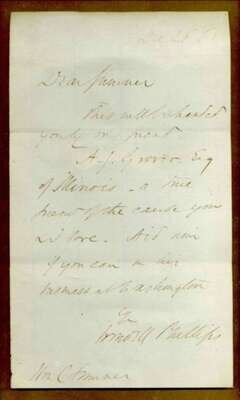 Dear Sumner
This will be handed
you by my friend
A. J. Grover, Esq
of Illinois - a true
friend of the cause you
& I love. Aid him
if you can in his
business at Washington
Yrs
Wendell Phillips
Hon C Sumner